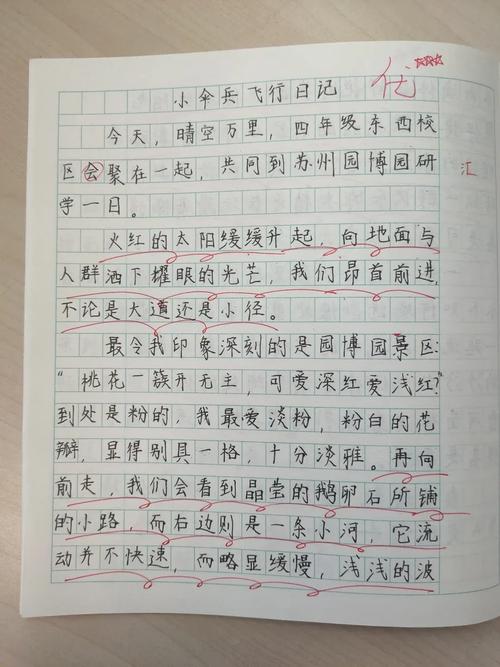 优
小伞兵飞行日记
今天，晴空万里，四年级东西校
区会聚在一起，共同到苏州园博园研
汇
学一日。
火红的太阳缓缓升起，向地面与
人群洒下耀眼的光芒，我们昂首前进，
不论是大道还是小径。
最令我印象深刻的是园博园景区：
“桃花一簇开无主，可爱深红爱浅红？”
到处是粉的，我最爱淡粉，粉白的花
瓣，显得别具一格，十分淡雅。再向
前走，我们会看到晶莹的鹅卵石所铺
的小路，而右边则是一条小河，它流
动并不快速，而略显缓慢，浅浅的波